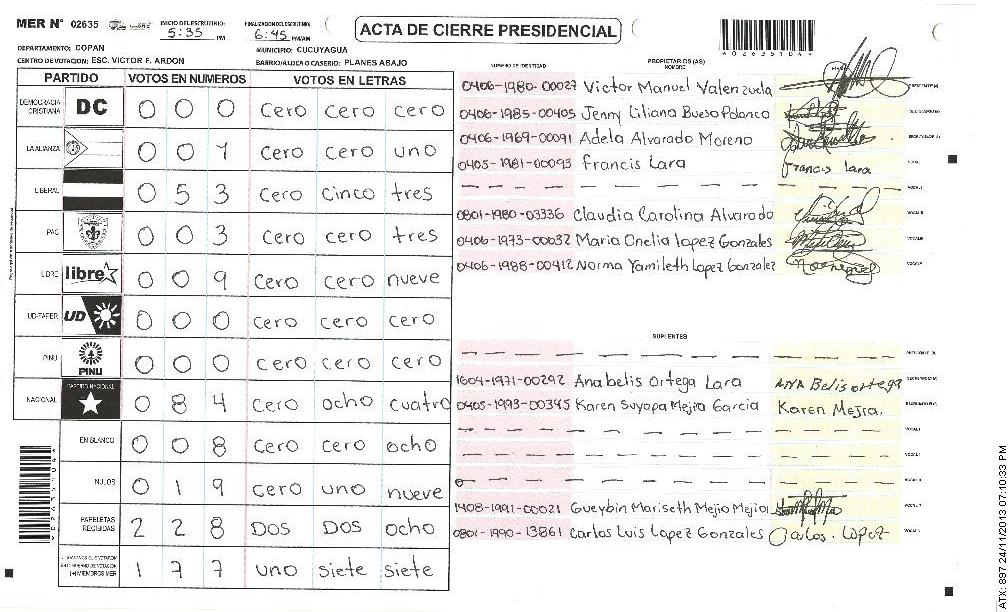 MER N° 02635
INICIO DEL ESCRUTINIO: 5:35 PM
FINALIZACION DEL ESCRUTINIO: 6:45 PM/AM
ACTA DE CIERRE PRESIDENCIAL
DEPARTAMENTO: COPAN
MUNICIPIO: CUCUYAGUA
CENTRO DE VOTACION: ESC. VICTOR F. ARDON
BARRIO/ALDEA O CASERIO: PLANES ABAJO
PARTIDO VOTOS EN NUMEROS VOTOS EN LETRAS
DEMOCRACIA CRISTIANA DC 0 0 0 cero cero cero
LA ALIANZA 0 0 1 cero cero uno
LIBERAL 0 5 3 cero cinco tres
PAC 0 0 3 cero cero tres
LIBRE libre 0 0 9 cero cero nueve
UD-FAPER UD 0 0 0 cero cero cero
PINU PINU 0 0 0 cero cero cero
NACIONAL PARTIDO NACIONAL 0 8 4 cero ocho cuatro
EN BLANCO 0 0 8 cero cero ocho
NULOS 0 1 9 cero uno nueve
PAPELETAS RECIBIDAS 2 2 8 DOS DOS ocho
1 7 7 uno siete siete
NUMERO DE IDENTIDAD
PROPIETARIOS (AS)
NOMBRE
0406-1980-00027 Victor Manuel Valenzuela
0406-1985-00405 Jenny Liliana Bueso Polanco
0406-1969-00091 Adela Alvarado Moreno
0405-1981-00093 Francis Lara Francis Lara
0801-1980-03336 Claudia Carolina Alvarado
0406-1973-00032 Maria Onelia Lopez Gonzales
0406-1988-00412 Norma Yamileth Lopez Gonzalez
SUPLENTES
1604-1971-00292 Anabelis Ortega Lara ANA Belis ortega
0405-1993-00345 Karen Suyapa Mejia Garcia Karen Mejia.
1408-1991-00021 Gueybin Mariseth Mejio Mejia
0801-1990-13861 Carlos Luis Lopez Gonzales Carlos. Lopez
ATX: 897 24/11/2013 07:10:33 PM